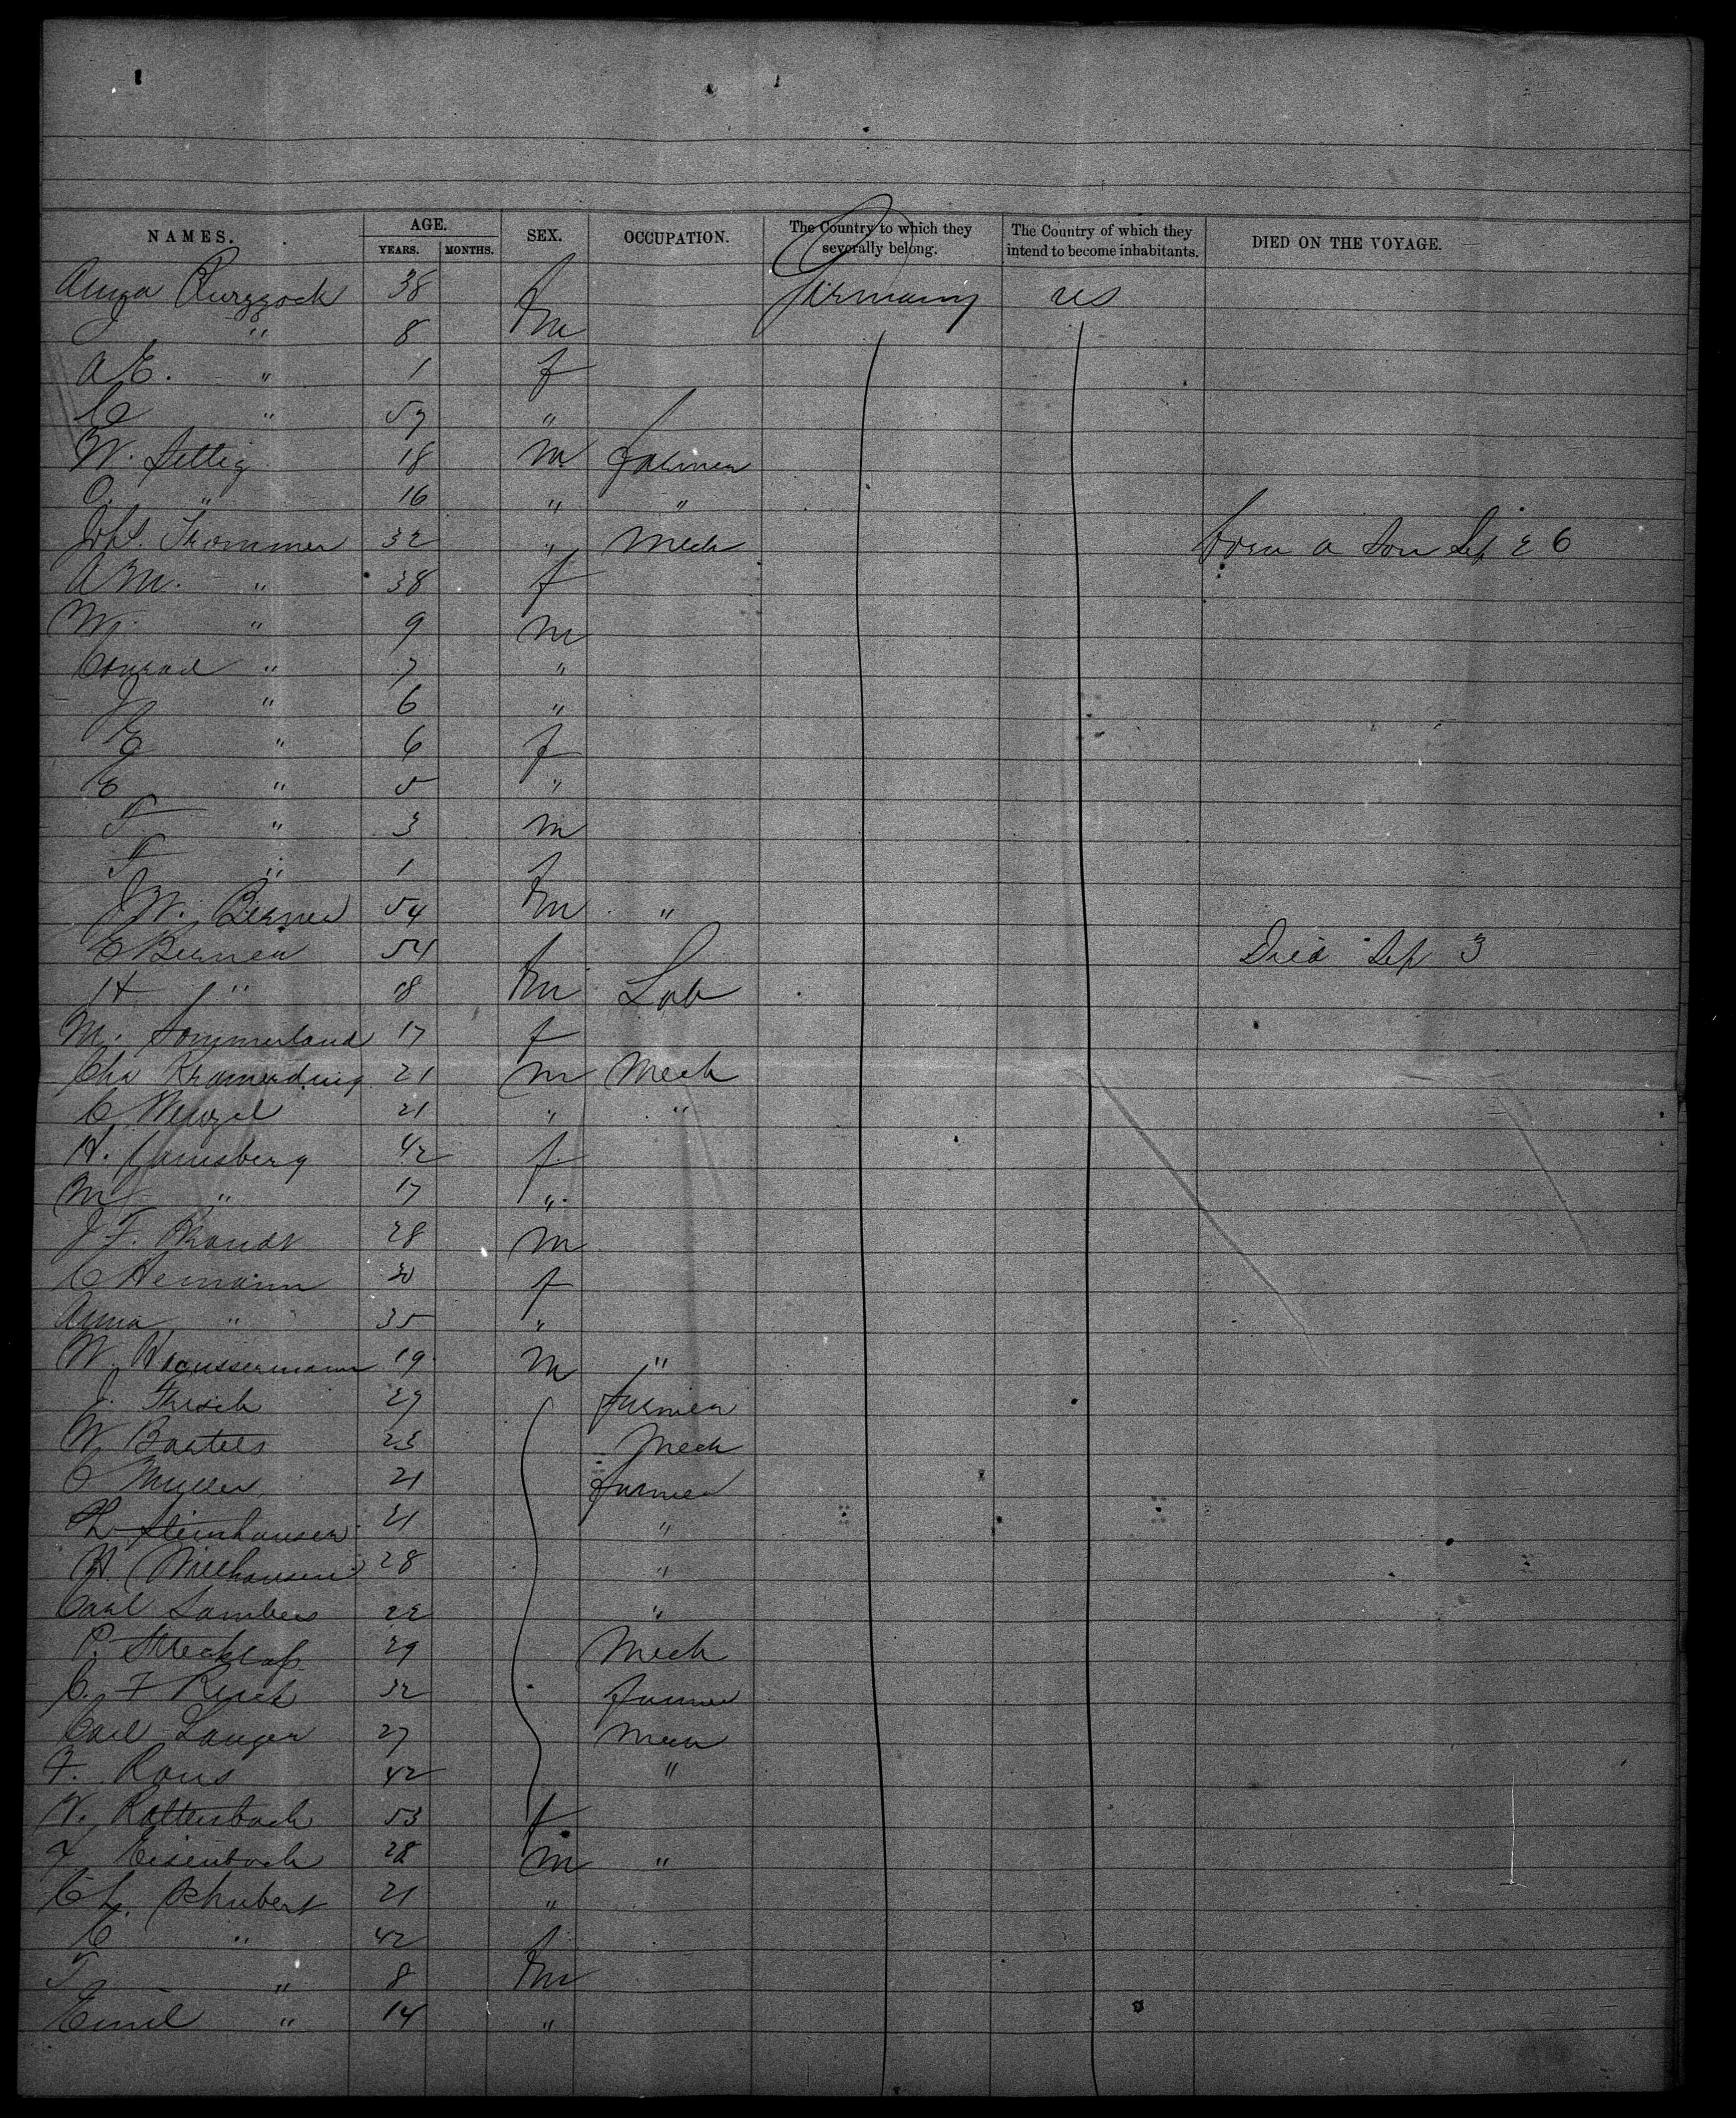 NAMES. AGE. YEARS. MONTHS. SEX. OCCUPATION. The Country to which they severally belong. The Country of which they intend to become inhabitants. DIED ON THE VOYAGE.
Anna 38 f Germany US
J " 8 m
A E. " 1 f
C " 57 "
W. Settig 18 m farmer
O. " 16 " "
Joh. Trommer 32 " Mech born a son Sep 26
A M. " 38 f
W. " 9 m
Conrad " 7 "
J " 6 "
E " 6 f
E " 5 "
F " 3 m
F " 1 f
J W. Berner 54 m "
E Berner 54 f Died Sep 3
H " 18 m Lab
M. Sommerland 17 f
Chr Kramerding 21 m Mech
C Wenzel 21 " "
H. 42 f
M " 17 "
J F. Brandt 28 m
C Hemann 30 f
Anna " 35 "
W. Haussermann 19 m "
J. Frisch 29 farmer
W Bartels 23 Mech
C Muller 21 farmer
Steinhauser 21 "
H. 28 "
Carl Lambers 22 "
P. 29 Mech
C. F Reich 32 farmer
Carl Langer 27 Mech
F. Rous 42 "
W. Rottersbach 53 f
F Eisenbach 28 m "
Ch. Schubert 21 "
C " 42 f
F " 8 m
Emil " 14 "